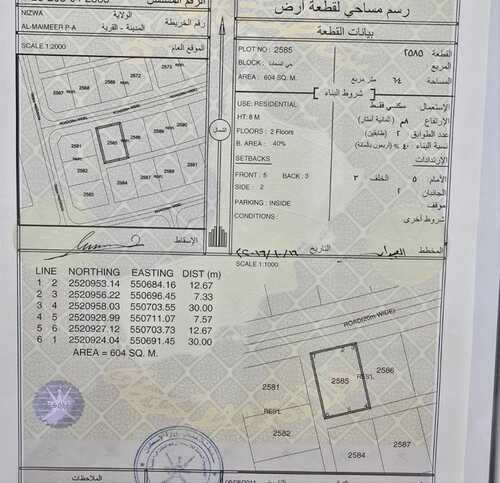 رسم مساحي لقطعة أرض
بيانات القطعة
NIZWA
الولاية
رقم الخريطة
AL-MAIMEER P-A
المدينة - القرية
SCALE 1:2000
الموقع العام
PLOT NO : 2585
القطعة ٢٥٨٥
BLOCK :
المربع
AREA : 604 SQ. M.
متر مربع
المساحة
شروط البناء
USE: RESIDENTIAL
الإستعمال: سكني فقط
HT: 8 M
الإرتفاع ٨م (ثمانية أمتار)
FLOORS : 2 Floors
عدد الطوابق ٢ (طابقين)
B. AREA : 40%
نسبة البناء ٤٠٪ (أربعون بالمائة)
SETBACKS
الإرتدادات
FRONT : 5 BACK : 3
الأمام ٥ الخلف ٣
SIDE : 2
الجانبان ٢
PARKING : INSIDE
موقف
CONDITIONS :
شروط أخرى
شمال
2567
2572
2573
2574
2580
2581
2585
2586
2582
2584
2587
الإسقاط
التاريخ
المخطط
SCALE 1:1000
LINE NORTHING EASTING DIST (m)
1 2 2520953.14 550684.16 12.67
2 3 2520956.22 550696.45 7.33
3 4 2520958.03 550703.55 30.00
4 5 2520928.99 550711.07 7.57
5 6 2520927.12 550703.73 12.67
6 1 2520924.04 550691.45 30.00
AREA = 604 SQ. M.
ROAD(20m WIDE)
2581
2585
RES'L
RES'L
2586
2582
2584
2587
الملاحظات
التاريخ